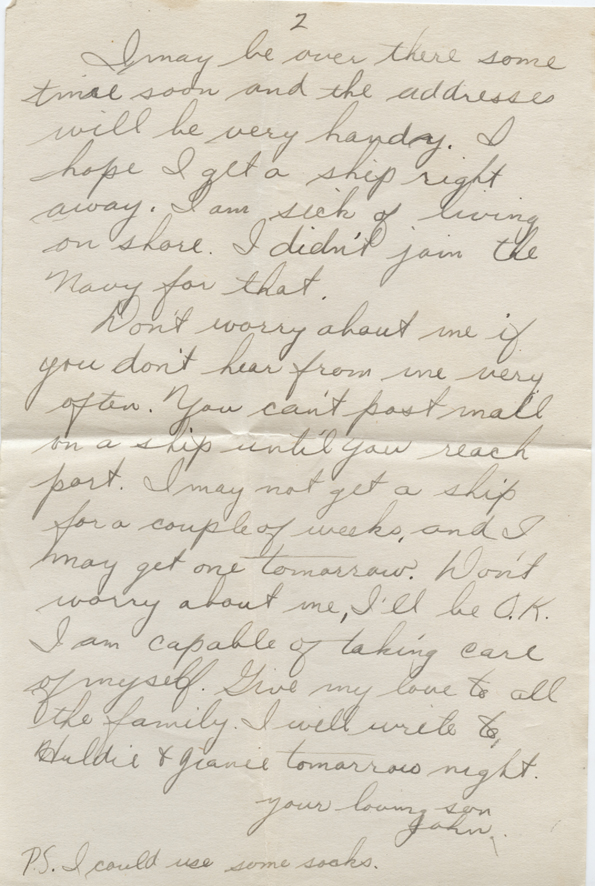 2
I may be over there some
time soon and the addresses
will be very handy. I
hope I get a ship right
away. I am sick of living
on shore. I didn't join the
Navy for that.
Don't worry about me if
you don't hear from me very
often. You can't post mail
on a ship until you reach
port. I may not get a ship
for a couple of weeks, and I
may get one tomorrow. Don't
worry about me, I'll be O.K.
I am capable of taking care
of myself. Give my love to all
the family. I will write to,
Huldie & tomorrow night.
your loving son
John.
P.S. I could use some socks.